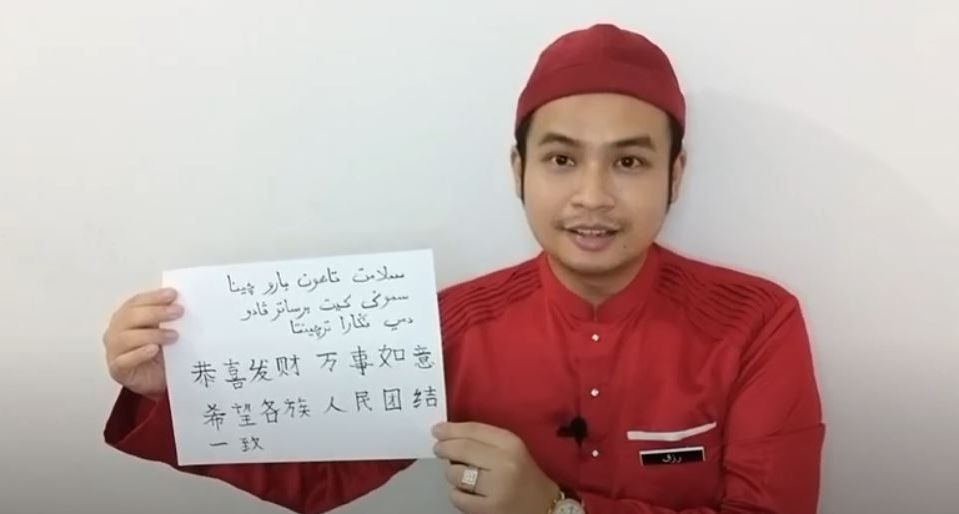 سلامت تاهون بارو چينا
سموݢ كيت برساتو ڤادو
دمي نݢارا ترچينتا
恭喜发财 万事如意
希望各族人民团结
一致
رزق